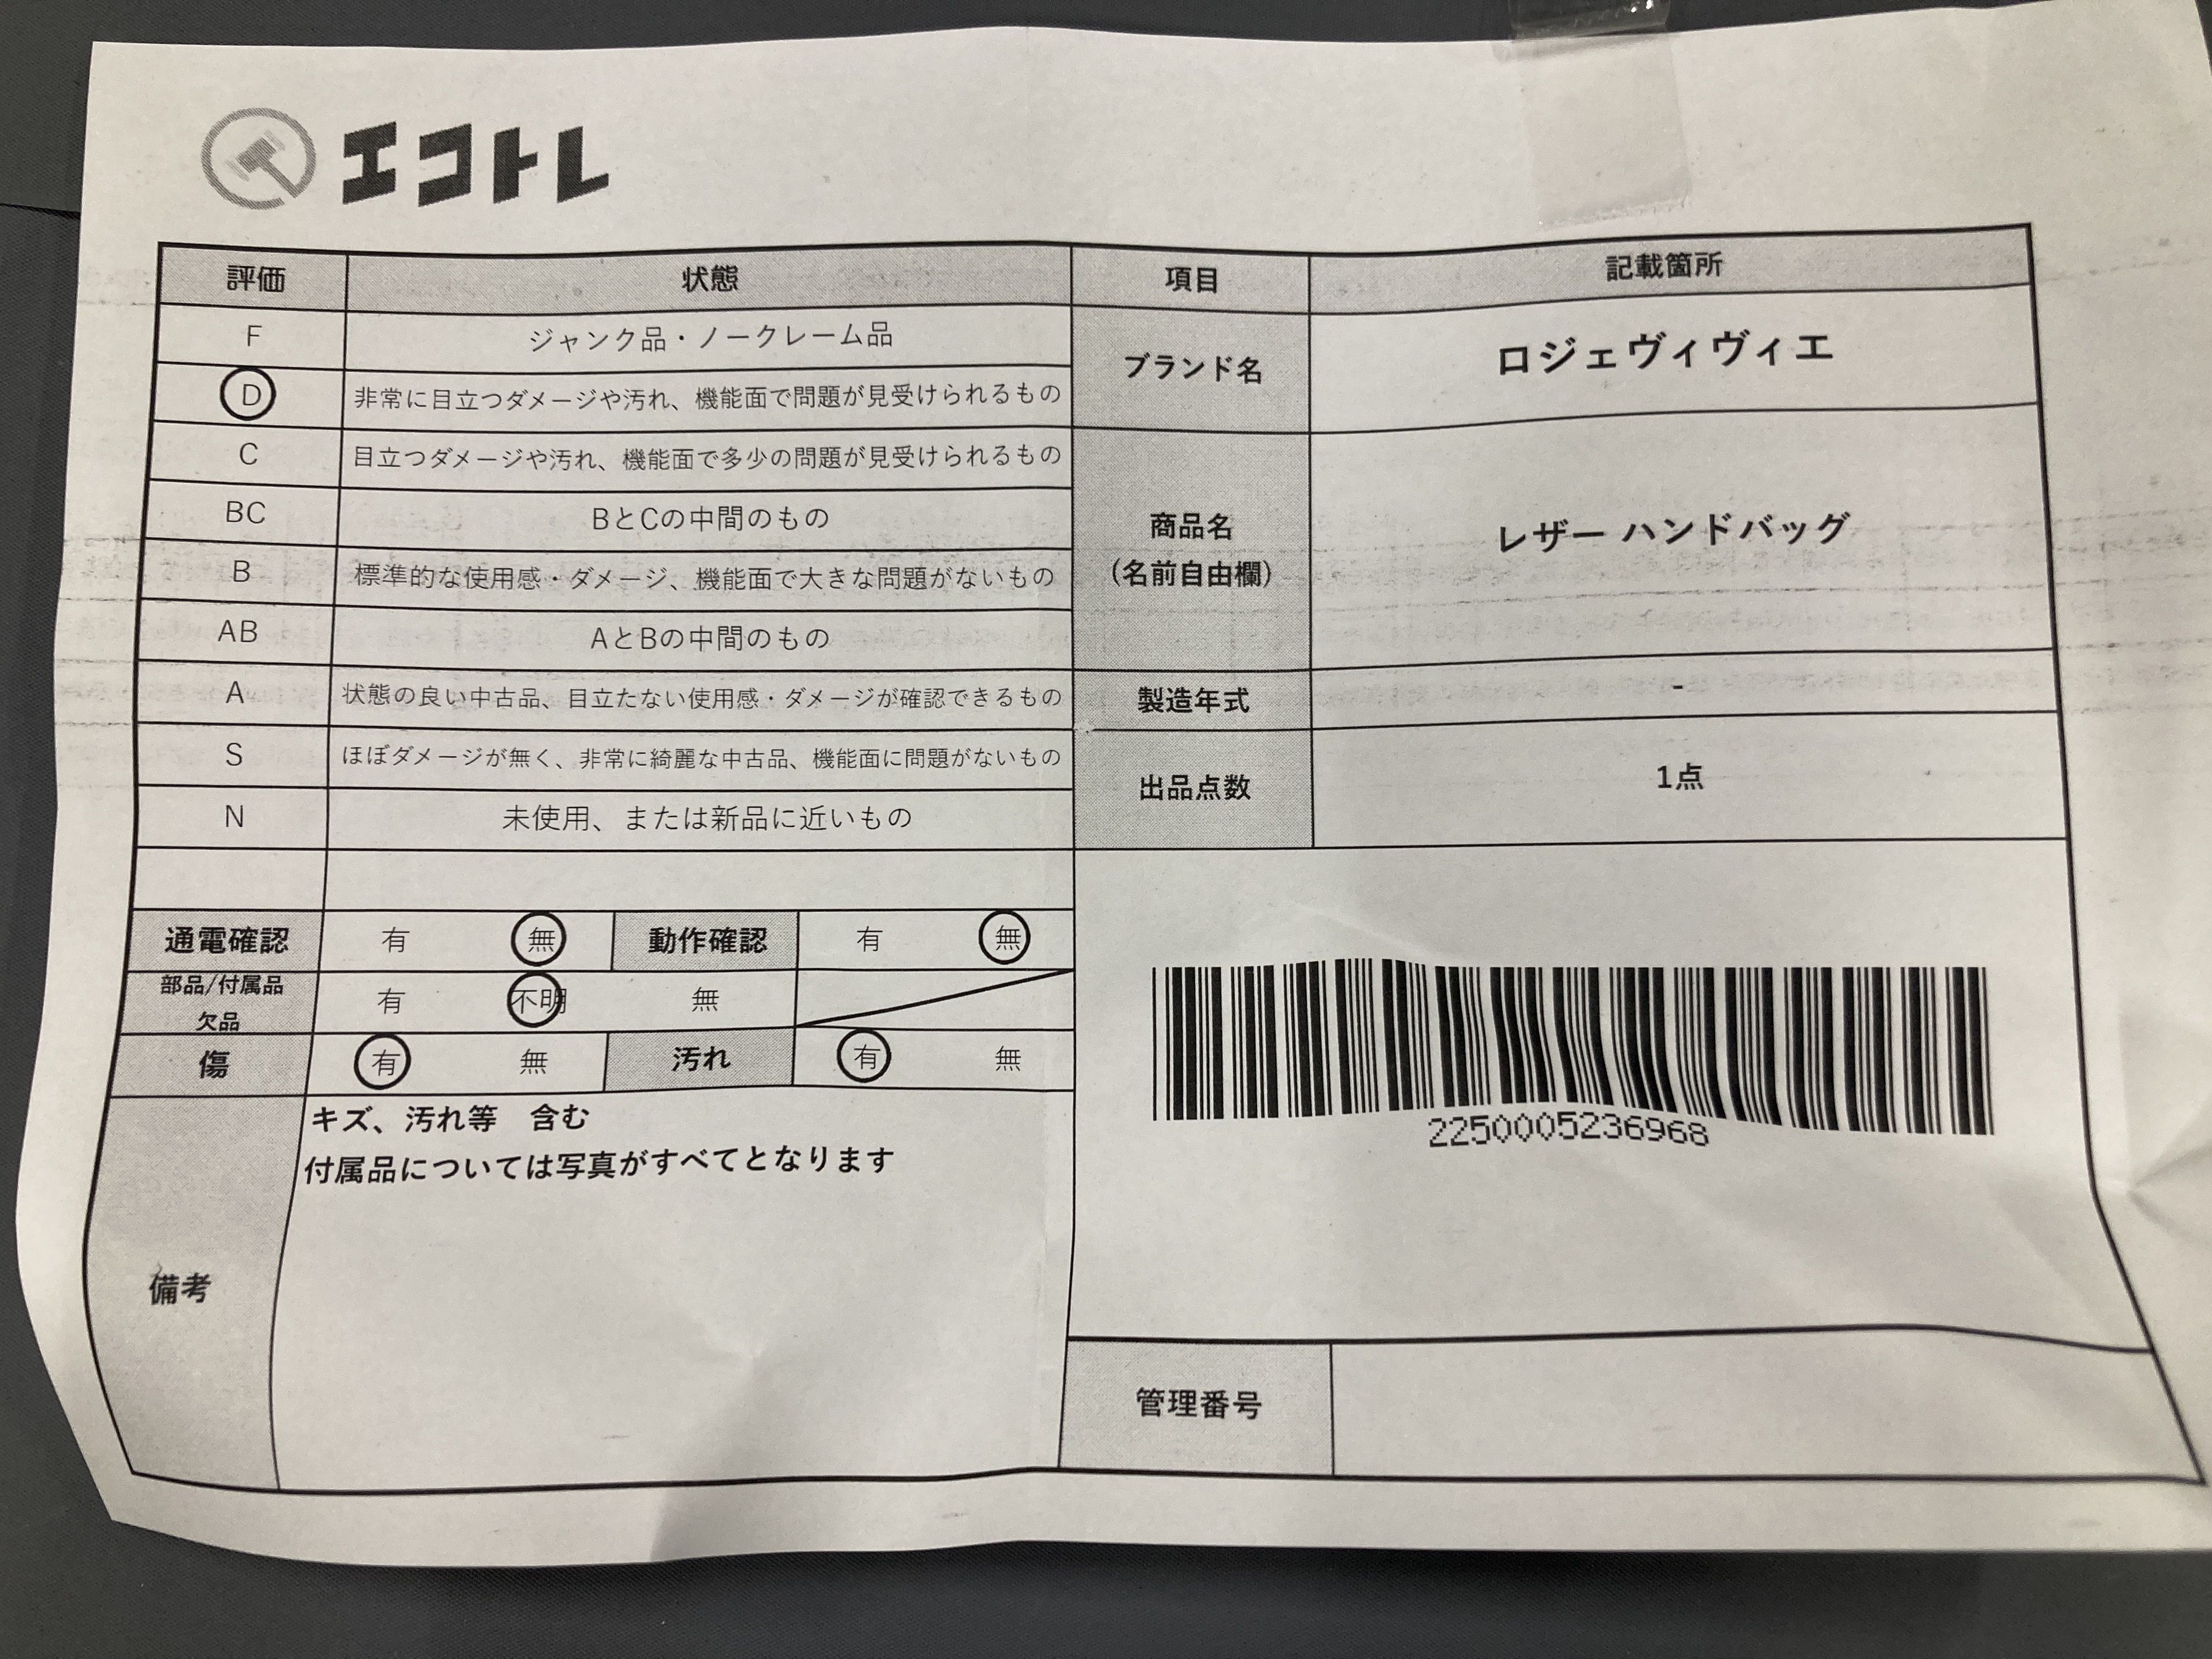 エコトレ
評価 状態 項目 記載箇所
F ジャンク品・ノークレーム品
D 非常に目立つダメージや汚れ、機能面で問題が見受けられるもの
ブランド名 ロジェヴィヴィエ
C 目立つダメージや汚れ、機能面で多少の問題が見受けられるもの
BC BとCの中間のもの
商品名
(名前自由欄)
レザー ハンドバッグ
B 標準的な使用感・ダメージ、機能面で大きな問題がないもの
AB AとBの中間のもの
A 状態の良い中古品、目立たない使用感・ダメージが確認できるもの
製造年式 -
S ほぼダメージが無く、非常に綺麗な中古品、機能面に問題がないもの
出品点数 1点
N 未使用、または新品に近いもの
通電確認 有 無 動作確認 有 無
部品/付属品
欠品
有 不明 無
傷 有 無 汚れ 有 無
備考
キズ、汚れ等　含む
付属品については写真がすべてとなります
2250005236968
管理番号